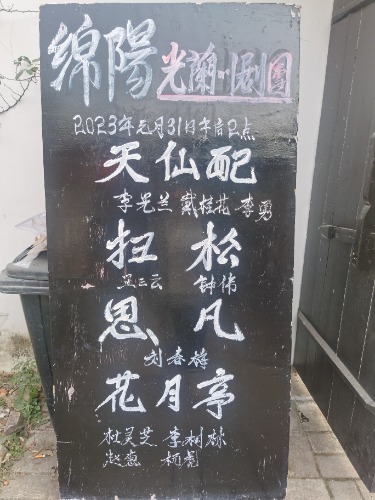 绵陽光蘭·剧团
2023年元月31日午后2点
天仙配
李光兰 戴桂花 李勇
扫松
王三云 钟伟
思凡
刘春梅
花月亭
杜灵芝 李树林
赵惠 杨亮